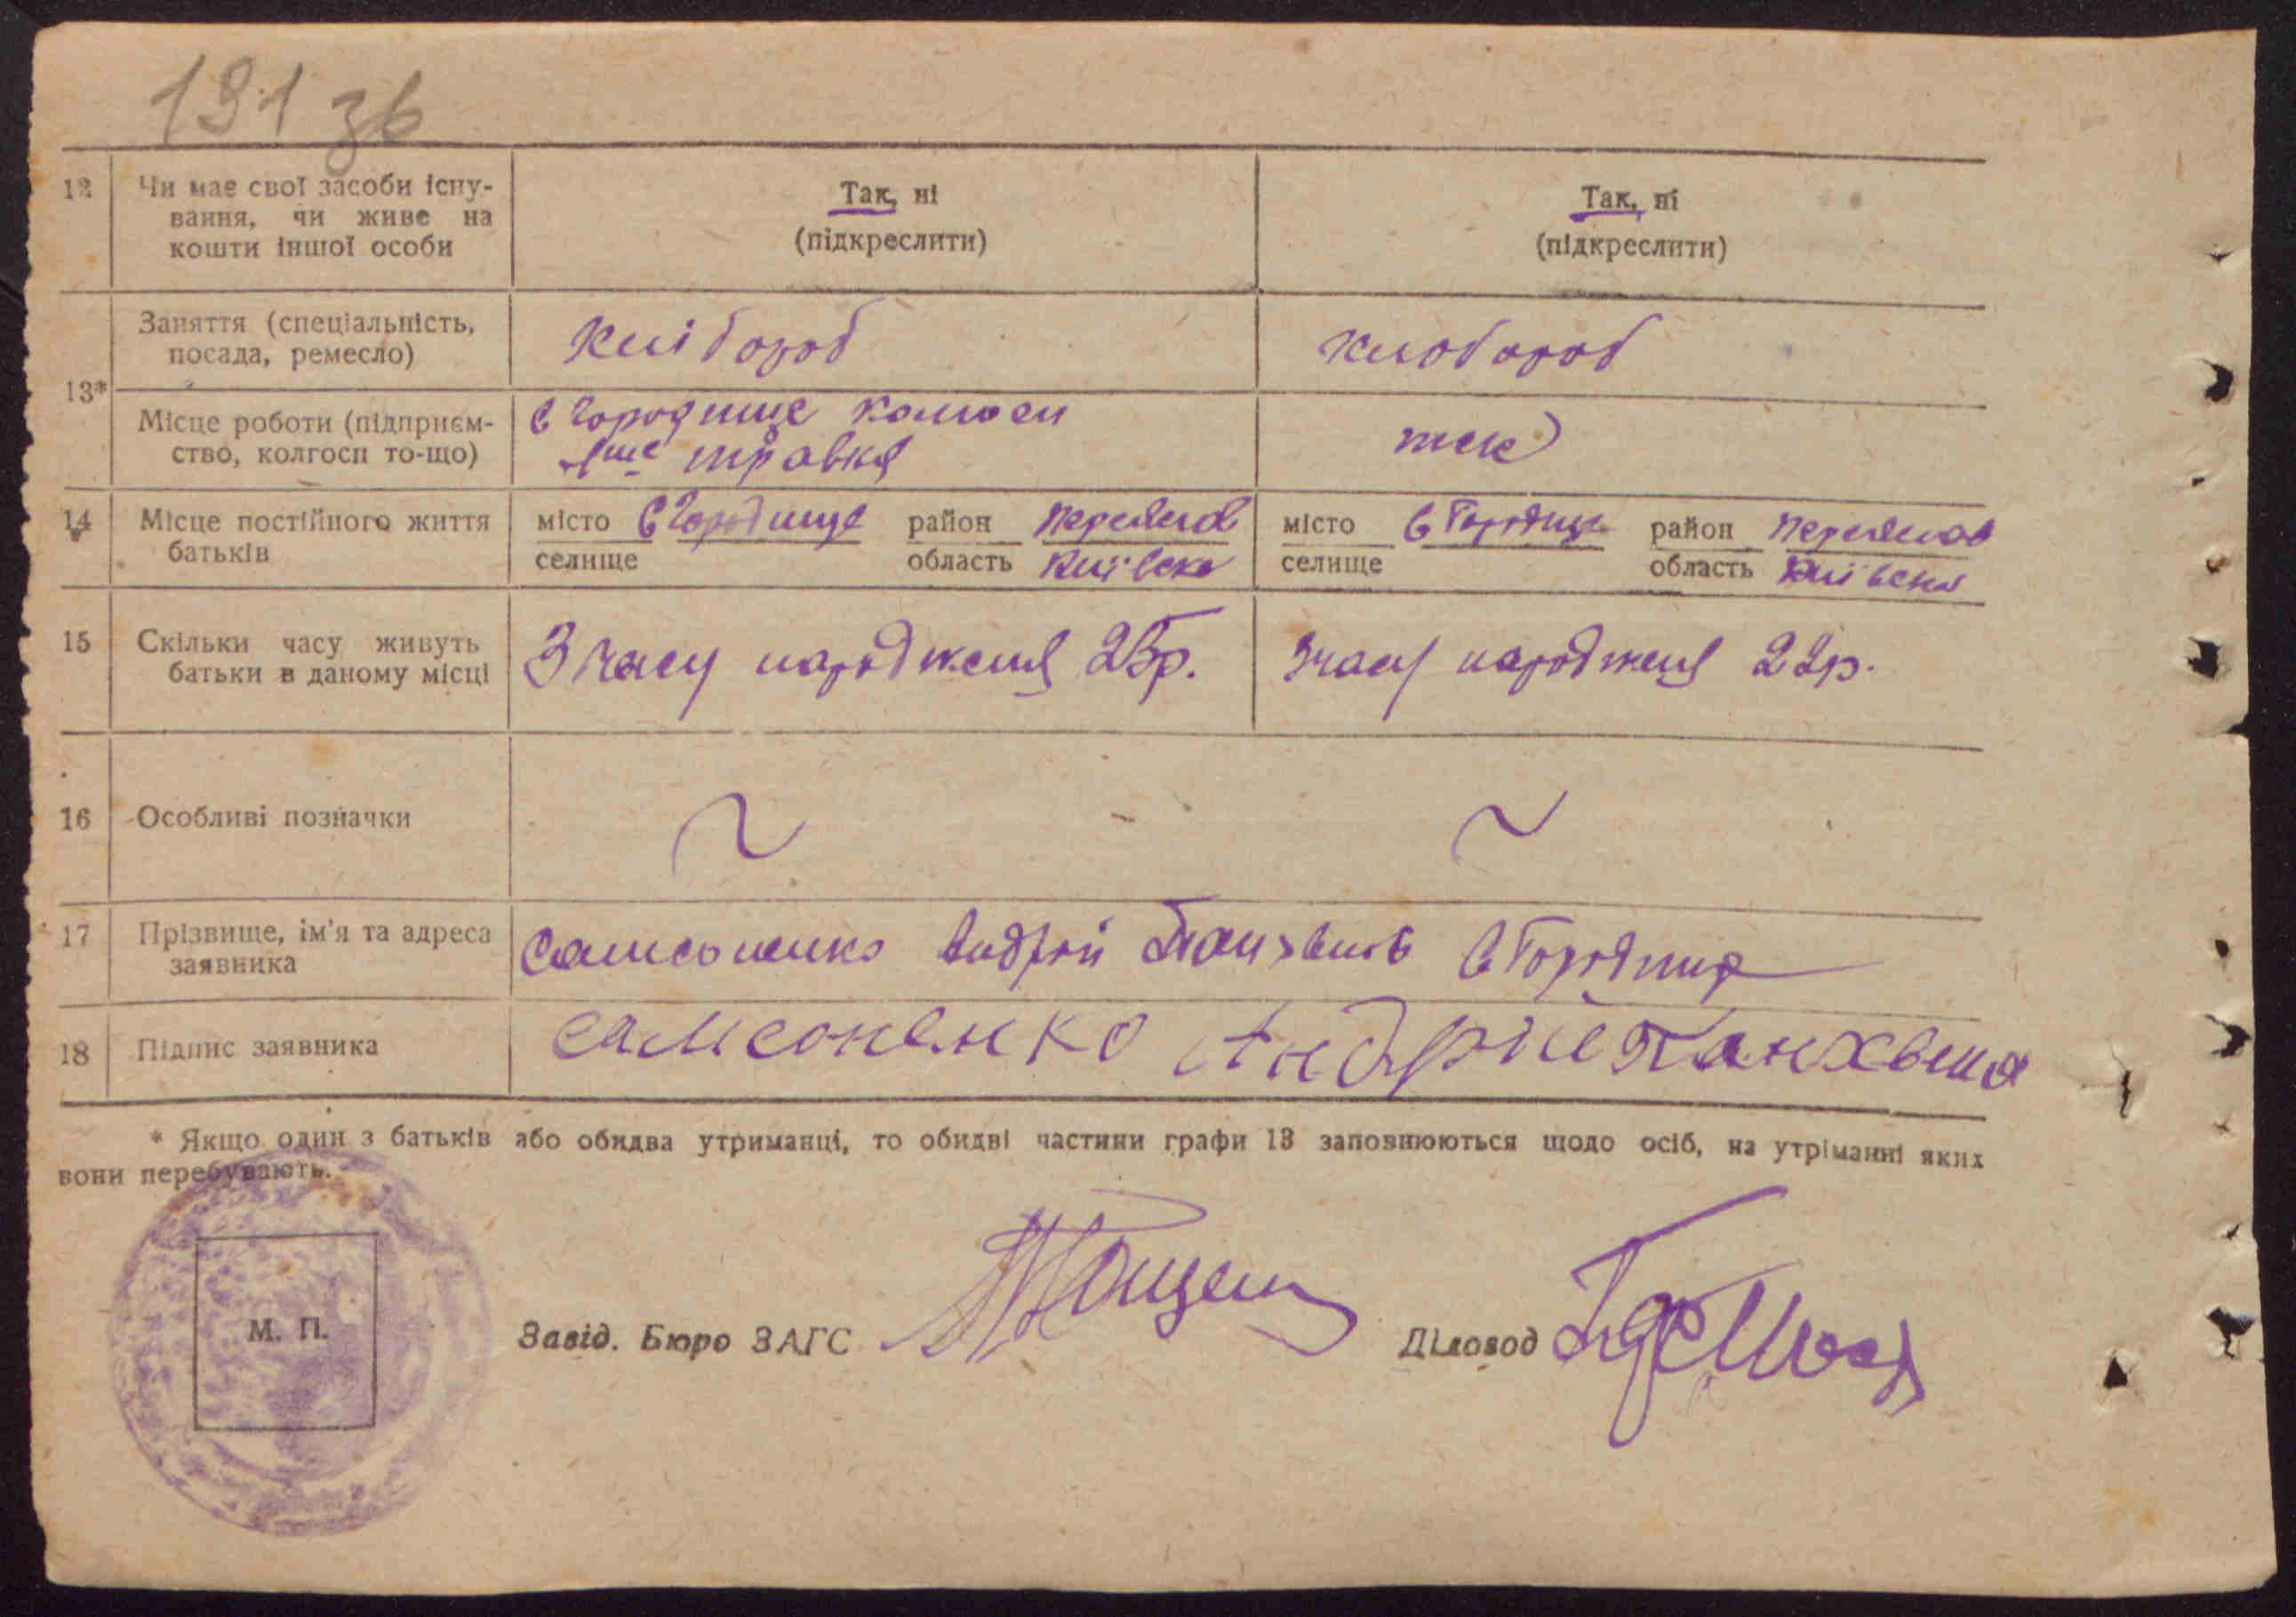 191 зв
12 Чи має свої засоби існу-
вання, чи живе на
кошти іншої особи
Так, ні
(підкреслити)
Так, ні
(підкреслити)
13*
Заняття (спеціальність,
посада, ремесло)
хлібороб
хлобороб
Місце роботи (підприєм-
ство, колгосп то-що)
с Городище
1ше травня
теж
14 Місце постійного життя
батьків
місто с Городище район Переяслов
селище область Київська
місто с Городище район Переяслов
селище область Київська
15 Скільки часу живуть
батьки в даному місці
З часу народженя 25р.
Зчасу народженя 22р.
16 Особливі позначки
17 Прізвище, ім'я та адреса
заявника
Самсоненко Андрій с Городище
18 Підпис заявника
Самсоненко Андрій
* Якщо один з батьків або обидва утриманці, то обидві частини графи 13 заповнюються щодо осіб, на утріманні яких
вони перебувають.
М. П.
Завід. Бюро ЗАГС
Діловод